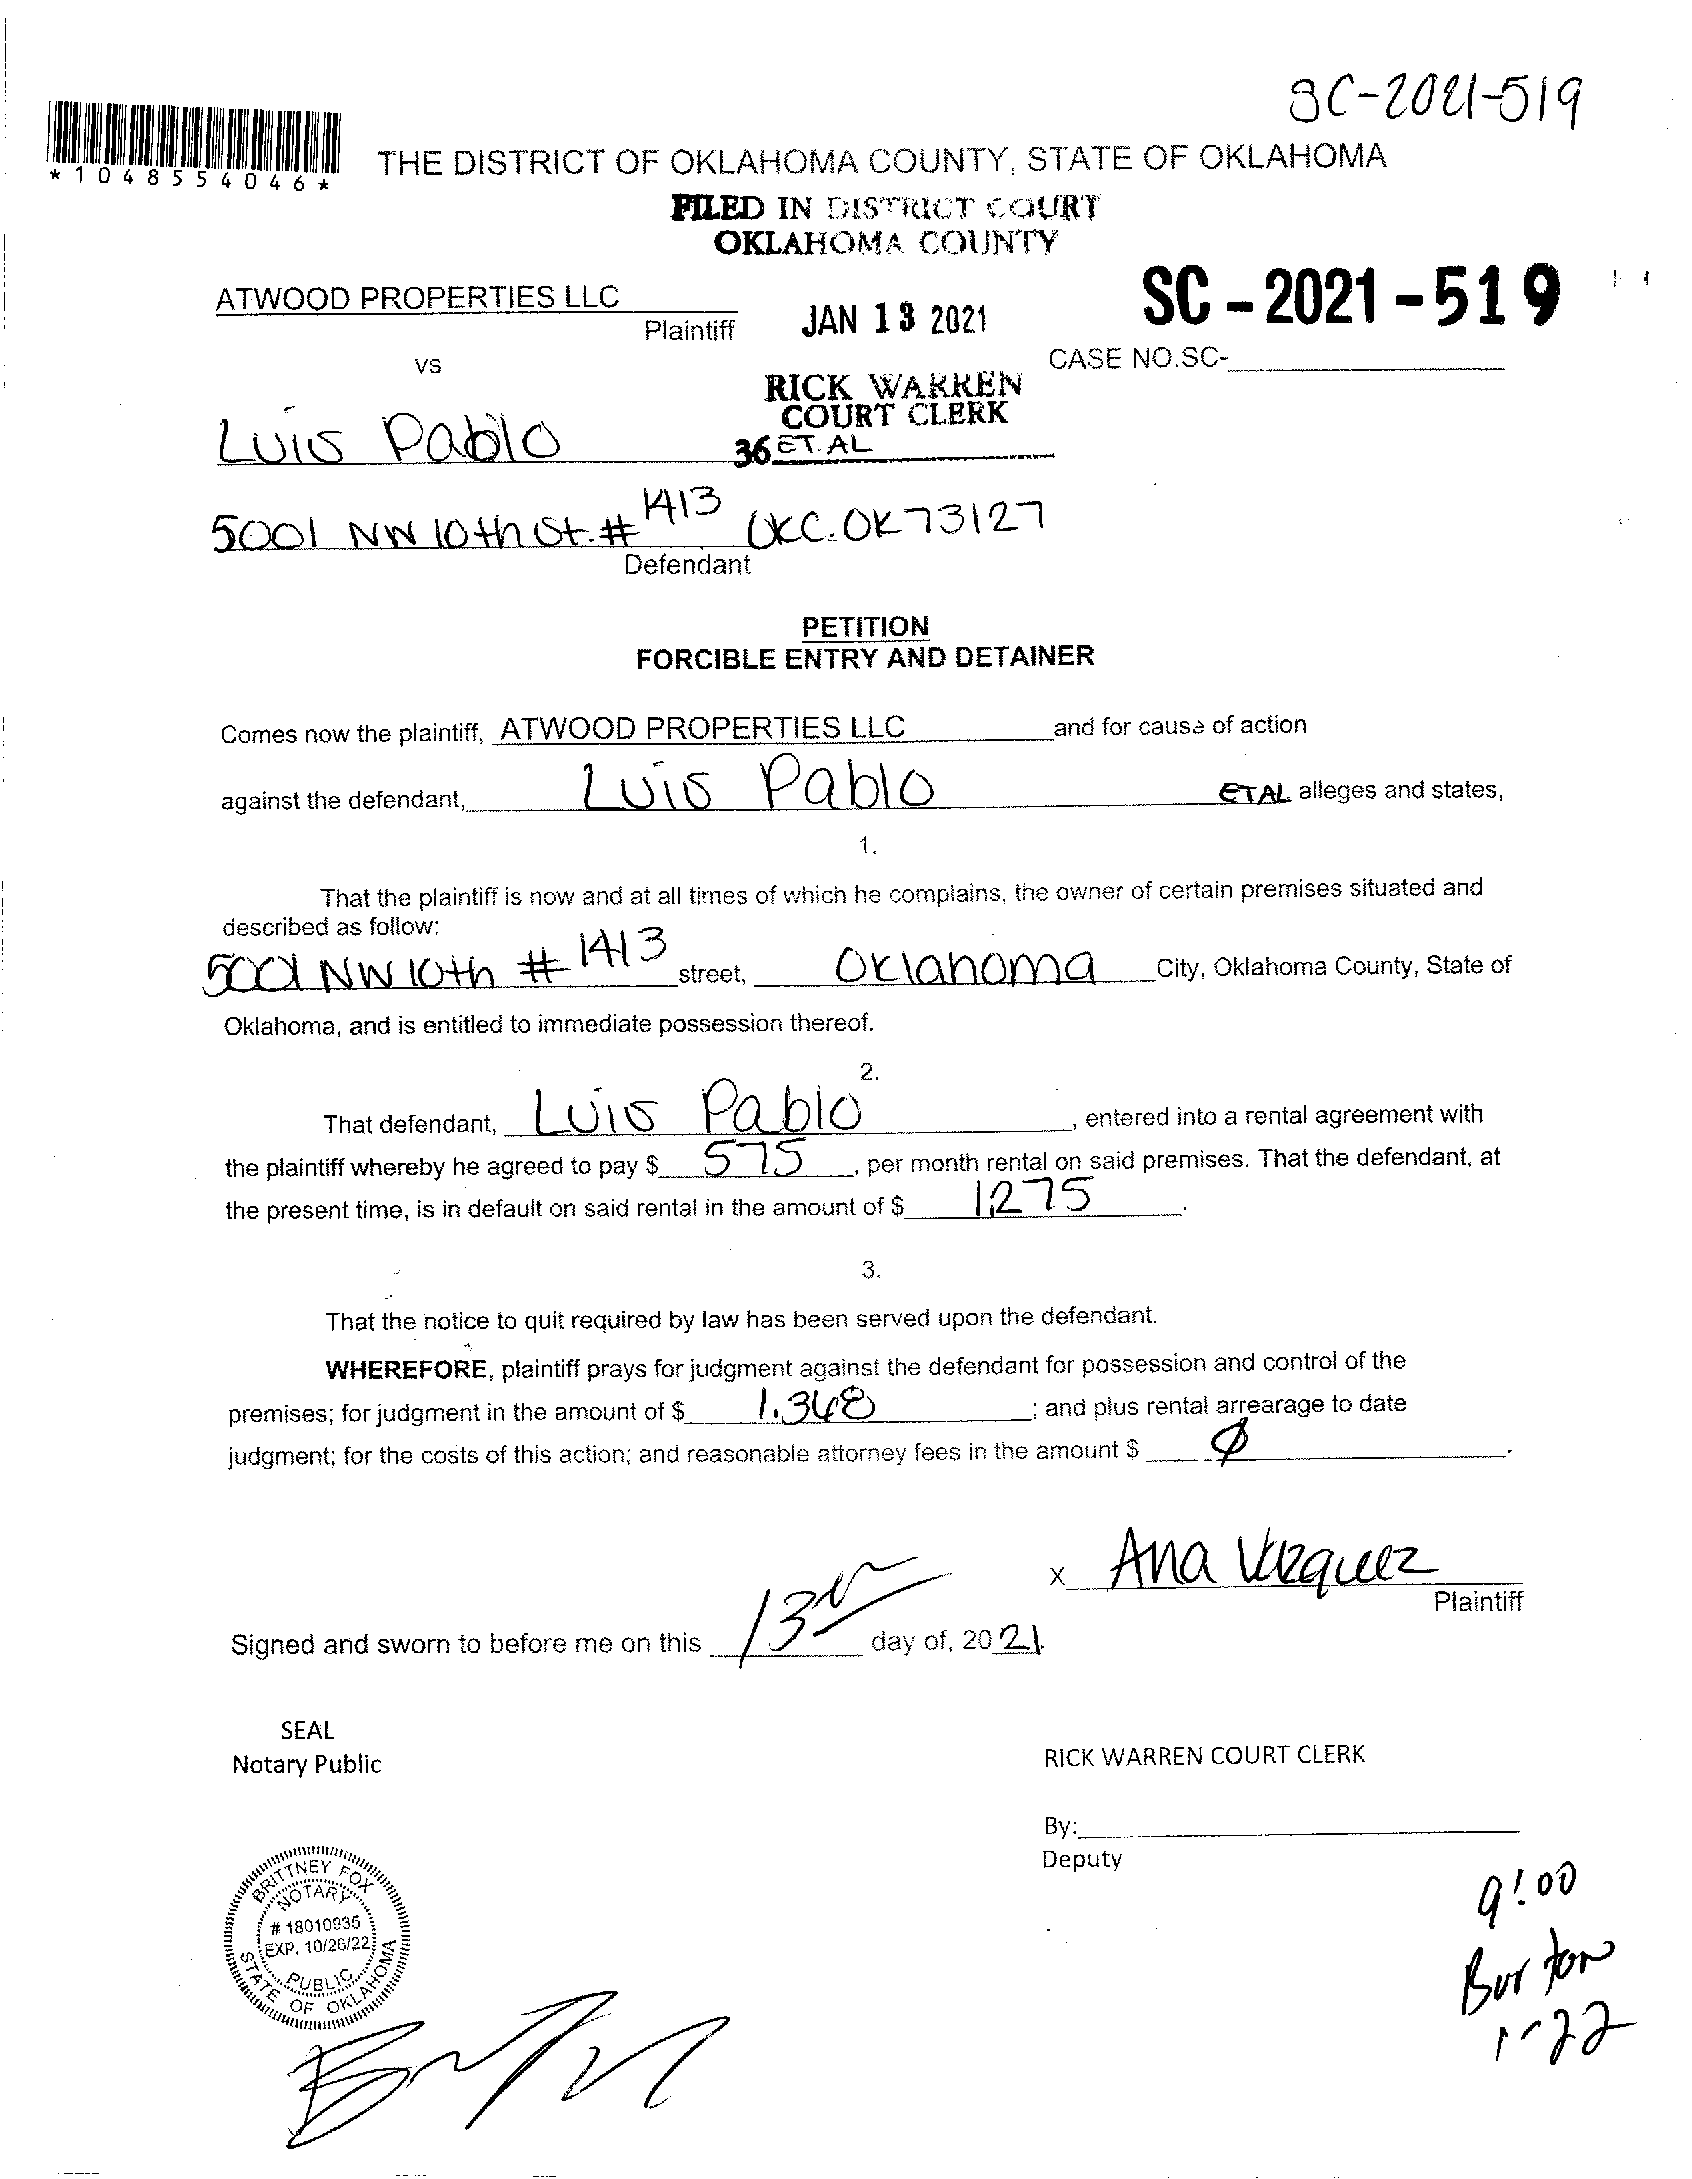 SC-2021-519
*1048554046*
THE DISTRICT OF OKLAHOMA COUNTY, STATE OF OKLAHOMA
FILED IN DISTRICT COURT
OKLAHOMA COUNTY
ATWOOD PROPERTIES LLC
Plaintiff
JAN 13 2021
SC-2021-519
vs
CASE NO.SC-
RICK WARREN
COURT CLERK
Luis Pablo
36 ET. AL
5001 NW 10th St. # 1413 OKC. OK 73127
Defendant
PETITION
FORCIBLE ENTRY AND DETAINER
Comes now the plaintiff, ATWOOD PROPERTIES LLC and for cause of action
against the defendant, Luis Pablo ETAL alleges and states,
1.
That the plaintiff is now and at all times of which he complains, the owner of certain premises situated and
described as follow:
5001 NW 10th # 1413 street, Oklahoma City, Oklahoma County, State of
Oklahoma, and is entitled to immediate possession thereof.
2.
That defendant, Luis Pablo, entered into a rental agreement with
the plaintiff whereby he agreed to pay $ 575, per month rental on said premises. That the defendant, at
the present time, is in default on said rental in the amount of $ 1,275.
3.
That the notice to quit required by law has been served upon the defendant.
WHEREFORE, plaintiff prays for judgment against the defendant for possession and control of the
premises; for judgment in the amount of $ 1.348; and plus rental arrearage to date
judgment; for the costs of this action; and reasonable attorney fees in the amount $ Ø.
x Ana Vazquez
Plaintiff
Signed and sworn to before me on this 13th day of, 2021.
SEAL
Notary Public
RICK WARREN COURT CLERK
By:
Deputy
BRITTNEY FOX
NOTARY
# 18010935
EXP. 10/26/22
PUBLIC
STATE OF OKLAHOMA
9:00
Burton
1-22